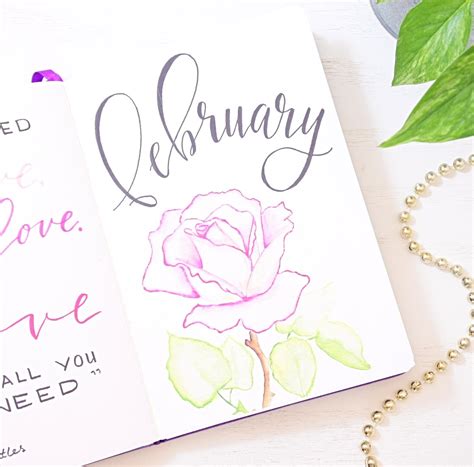 ED
ve,
love.
ove
ALL YOU
NEED”
tles
february